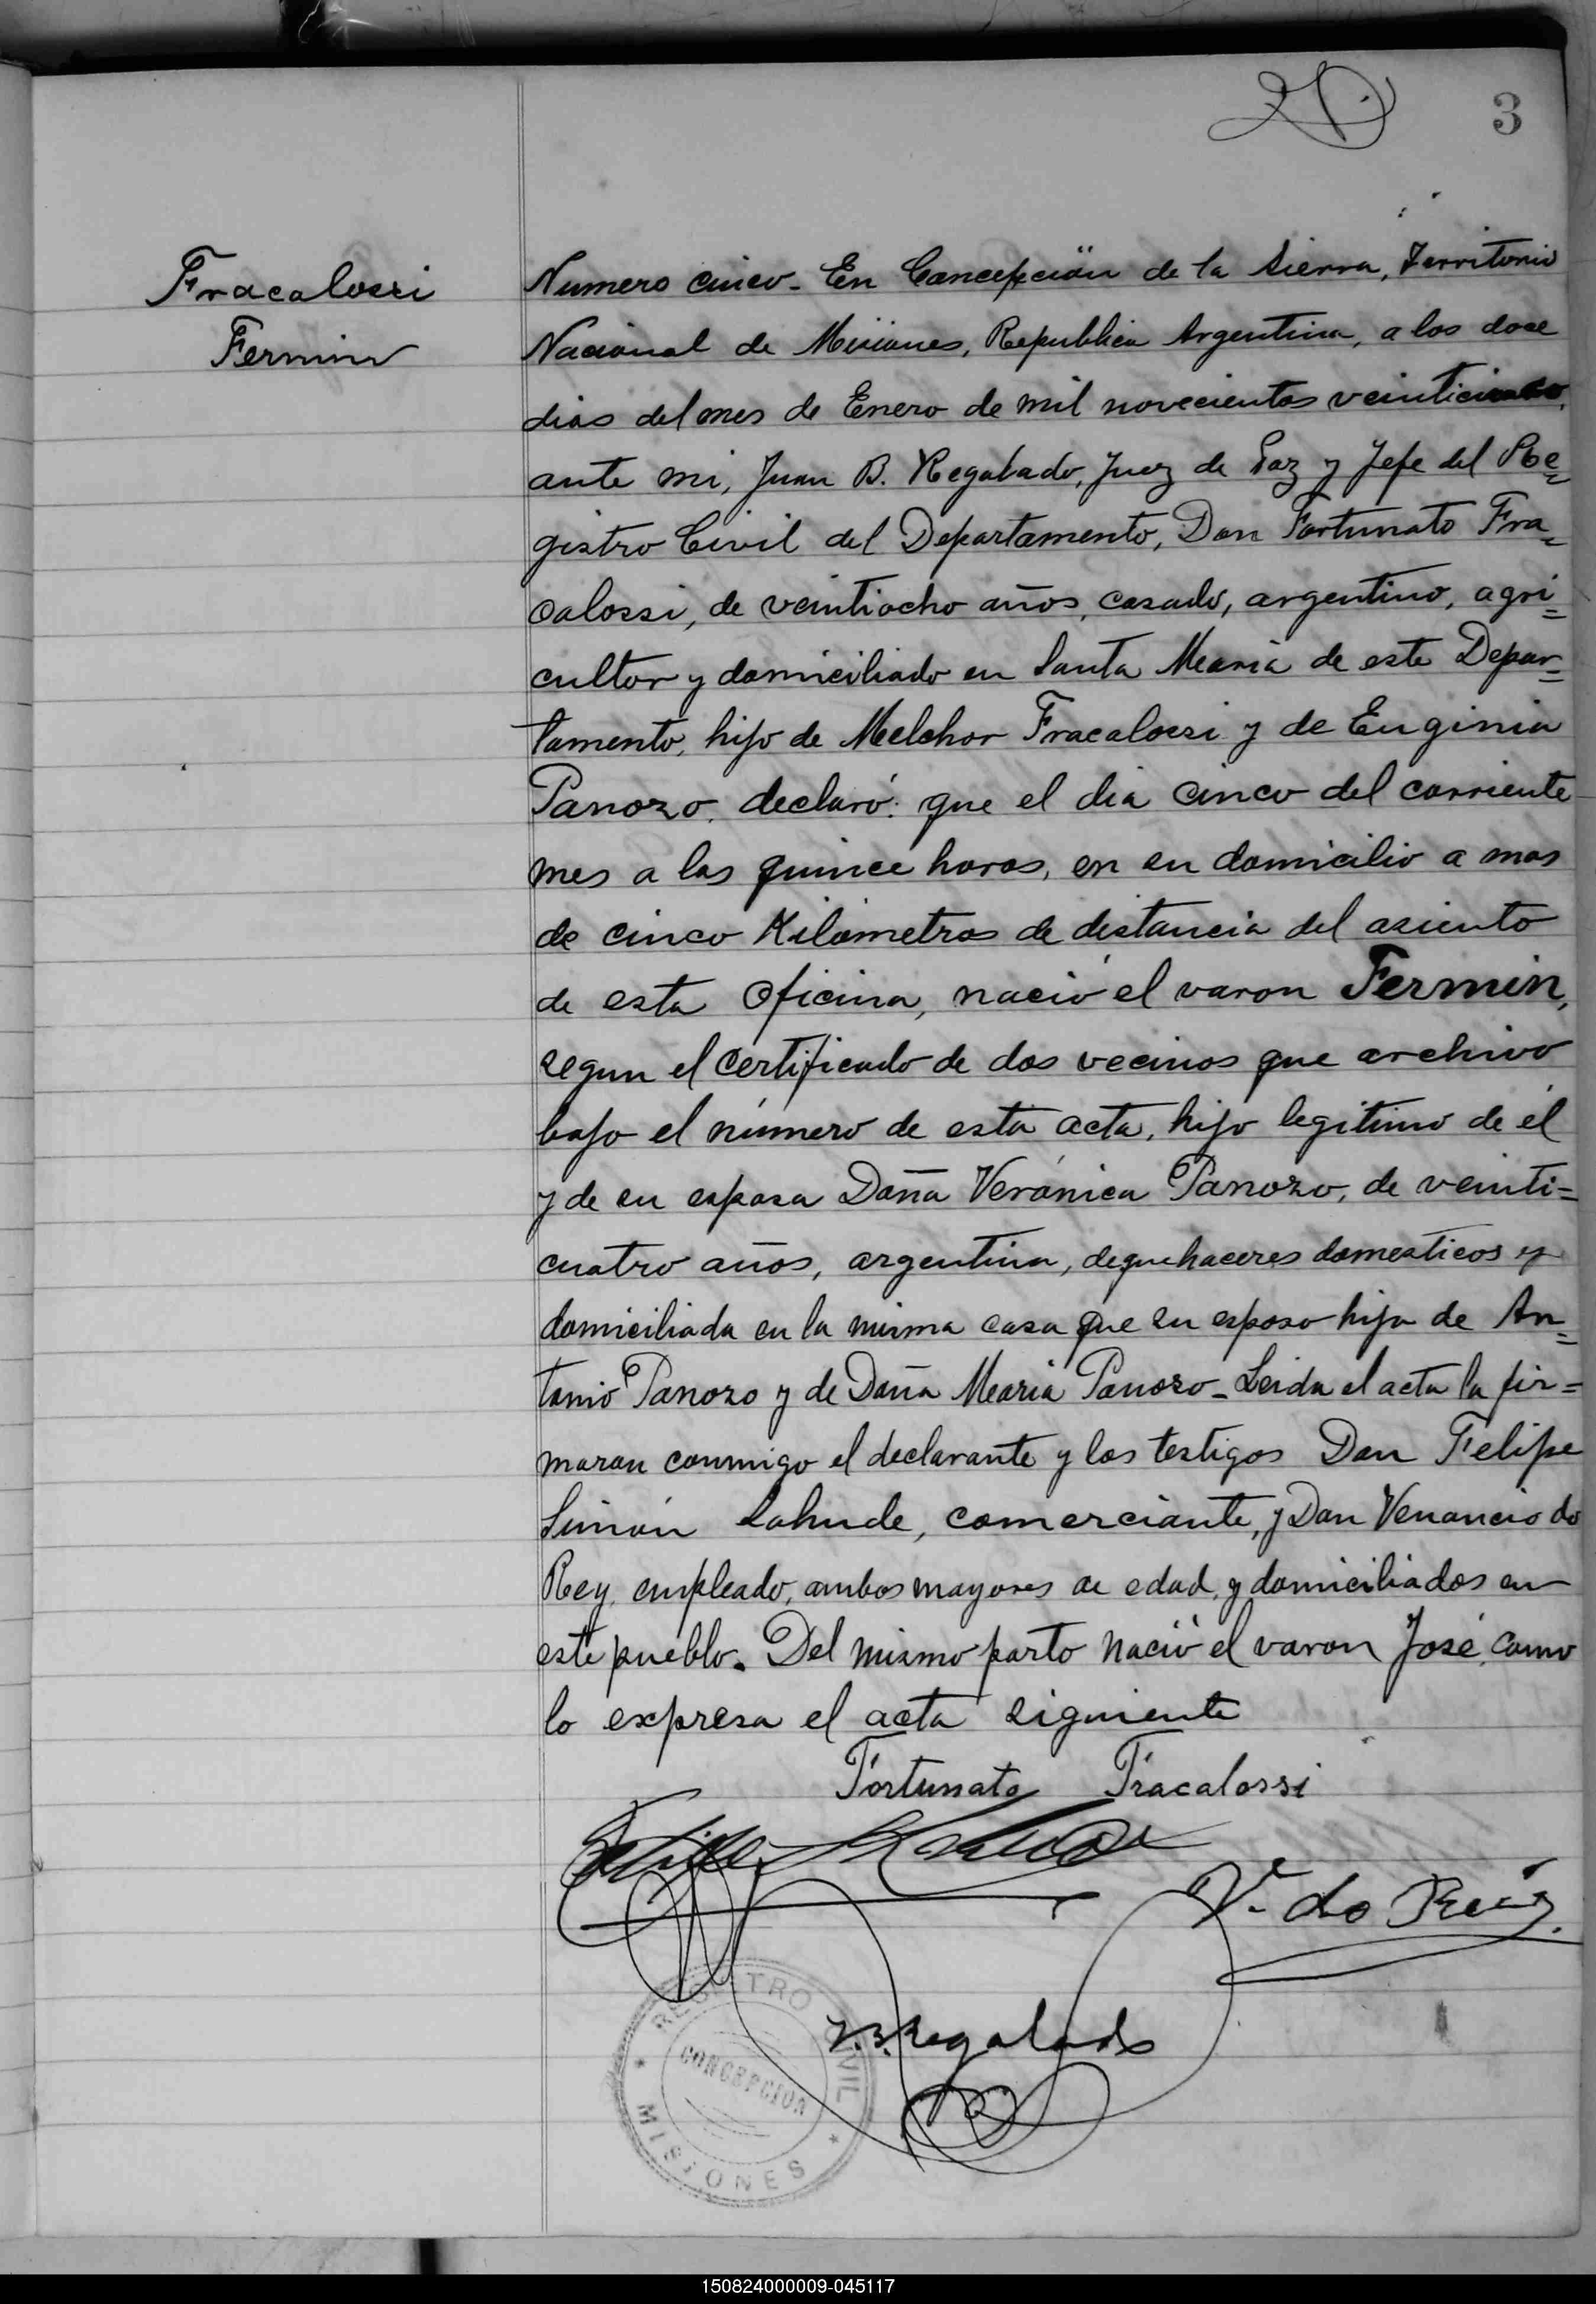 3
Fracalossi
Fermin
Numero cinco - En Concepción de la Sierra, Territorio
Nacional de Misiones, Republica Argentina, a los doce
dias del mes de Enero de mil novecientos
ante mi, Juan B. Regalado, Juez de Paz y Jefe del Re=
gistro Civil del Departamento, Don Fortunato Fra=
calossi, de veintiocho años, casado, argentino, agri=
cultor y domiciliado en Santa Maria de este Depar=
tamento, hijo de Melchor Fracalossi y de Euginia
Panozo, declaró: que el dia cinco del corriente
mes a las quince horas, en su domicilio a mas
de cinco Kilómetros de distancia del asiento
de esta Oficina, nació el varon Fermin,
segun el certificado de dos vecinos que archivo
bajo el número de esta acta, hijo legitimo de él
y de su esposa Doña Verónica Panozo, de veinti=
cuatro años, argentina, de quehaceres domesticos y
domiciliada en la misma casa que su esposo hija de An=
tonio Panozo y de Doña Maria Panozo - Leida el acta la fir=
maron conmigo el declarante y los testigos Don Felipe
Simón Sahude, comerciante, y Don Venancio do
Rey, empleado, ambos mayores de edad y domiciliados en
este pueblo. Del mismo parto nació el varon José, como
lo expresa el acta siguiente
Fortunato Fracalossi
V. do Reis
J.B. Regalado
REGISTRO CIVIL
CONCEPCION
MISIONES
150824000009-045117